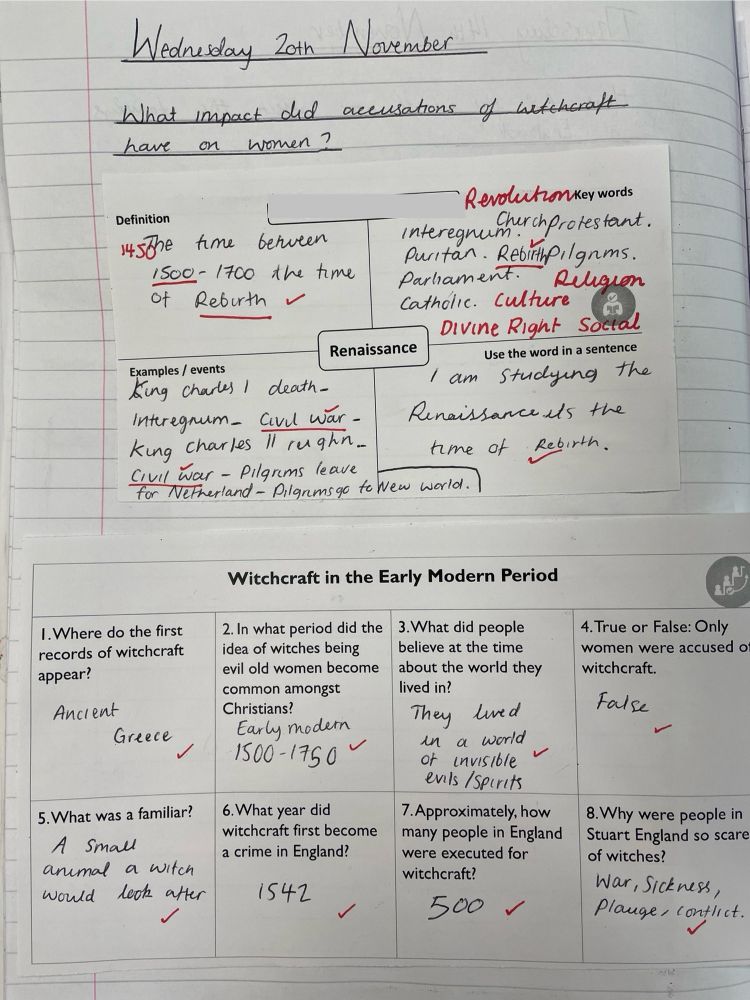 Wednesday 20th November
What impact did accusations of witchcraft
have on women?
Definition
1450 The time between
1500 - 1700 the time
of Rebirth
Revolution Key words
Church Protestant.
interegnum.
Puritan. Rebirth Pilgrims.
Parliament. Religion
Catholic. Culture
Divine Right Social
Renaissance
Examples / events
King charles I death -
Interegnum - Civil war -
King Charles II reighn -
Civil war - Pilgrims leave
for Netherland - Pilgrims go to New world.
Use the word in a sentence
I am studying the
Renaissance its the
time of Rebirth.
Witchcraft in the Early Modern Period
1.Where do the first
records of witchcraft
appear?
Ancient
Greece
2. In what period did the
idea of witches being
evil old women become
common amongst
Christians?
Early modern
1500-1750
3.What did people
believe at the time
about the world they
lived in?
They lived
in a world
of invisible
evils / spirits
4.True or False: Only
women were accused of
witchcraft.
False
5.What was a familiar?
A small
animal a witch
would look after
6.What year did
witchcraft first become
a crime in England?
1542
7.Approximately, how
many people in England
were executed for
witchcraft?
500
8.Why were people in
Stuart England so scare
of witches?
War, Sickness,
Plauge, conflict.